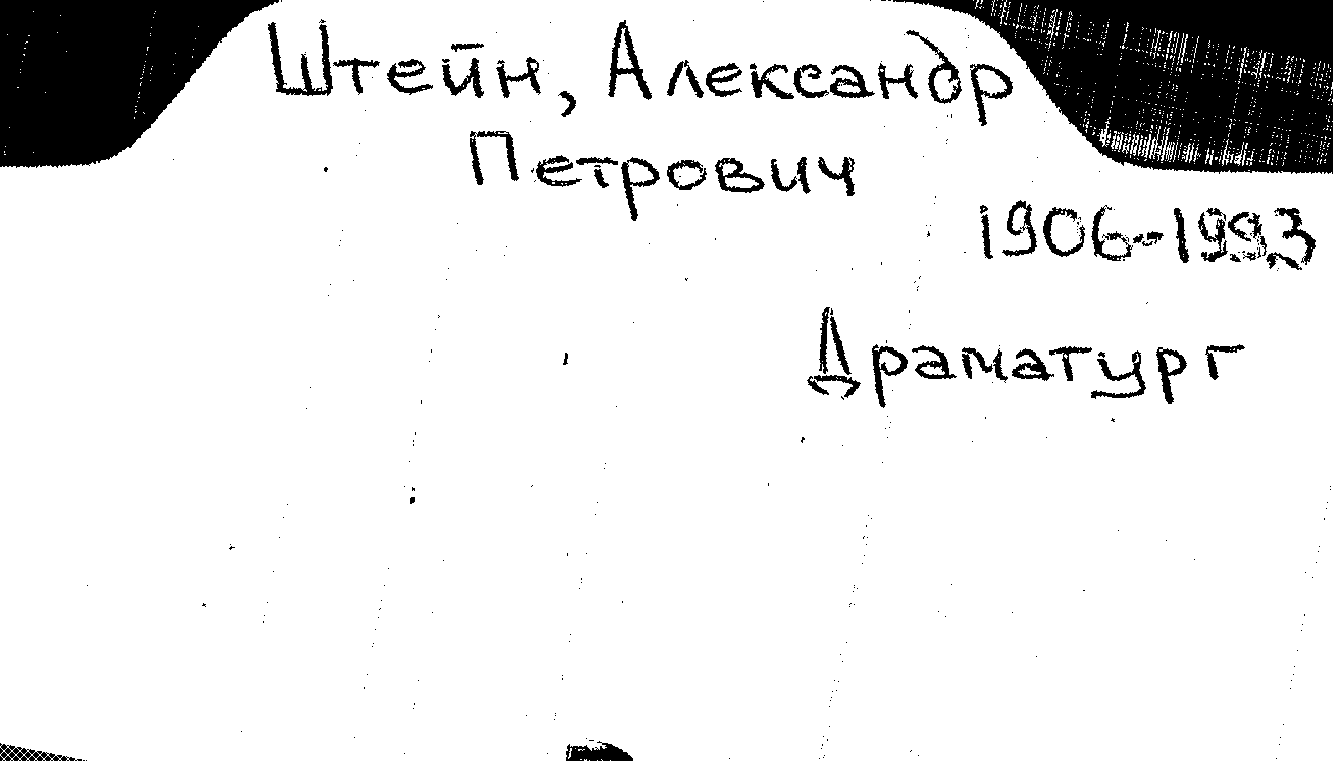 Штейн, Александр
Петрович
1906-1993
Драматург